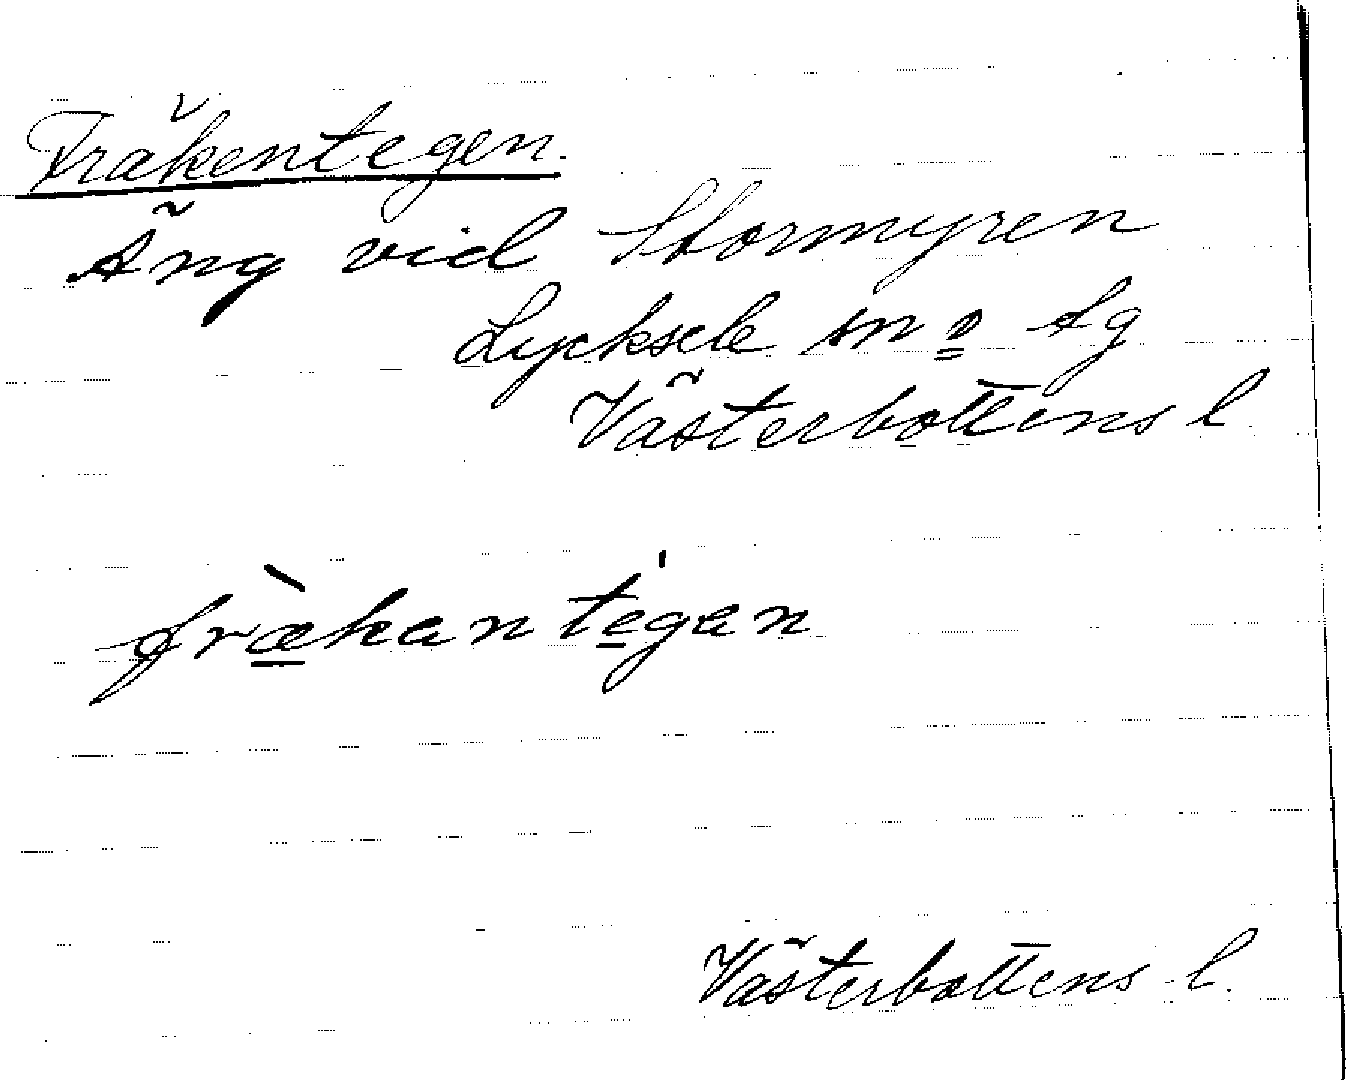 Fräkentegen.
Äng vid Stormyren
Lycksele sn o Lg
Västerbottens l
fræ̀kantégan
Västerbottens l.